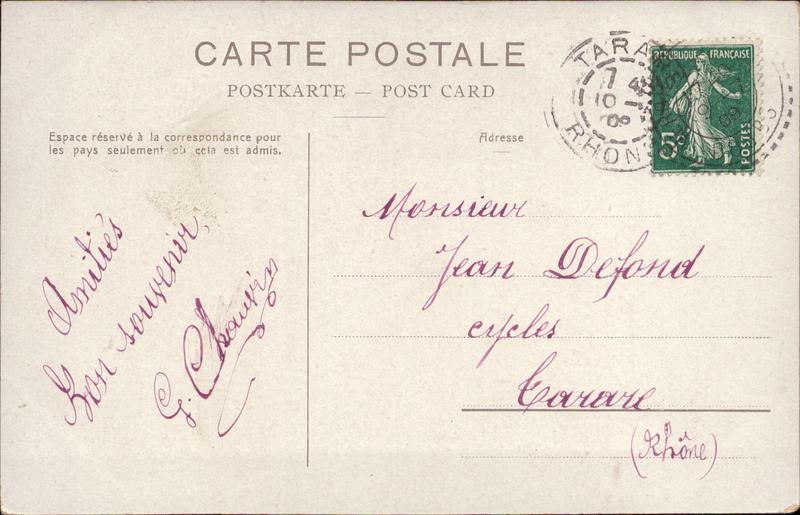 CARTE POSTALE
POSTKARTE — POST CARD
Espace réservé à la correspondance pour
les pays seulement où cela est admis.
Adresse
TARA
7
10
09
RHON
RÉPUBLIQUE FRANÇAISE
5c
POSTES
Amitiés
Bon souvenir,
G. Chauvin
Monsieur
Jean Defond
cycles
Tarare
(Rhône)